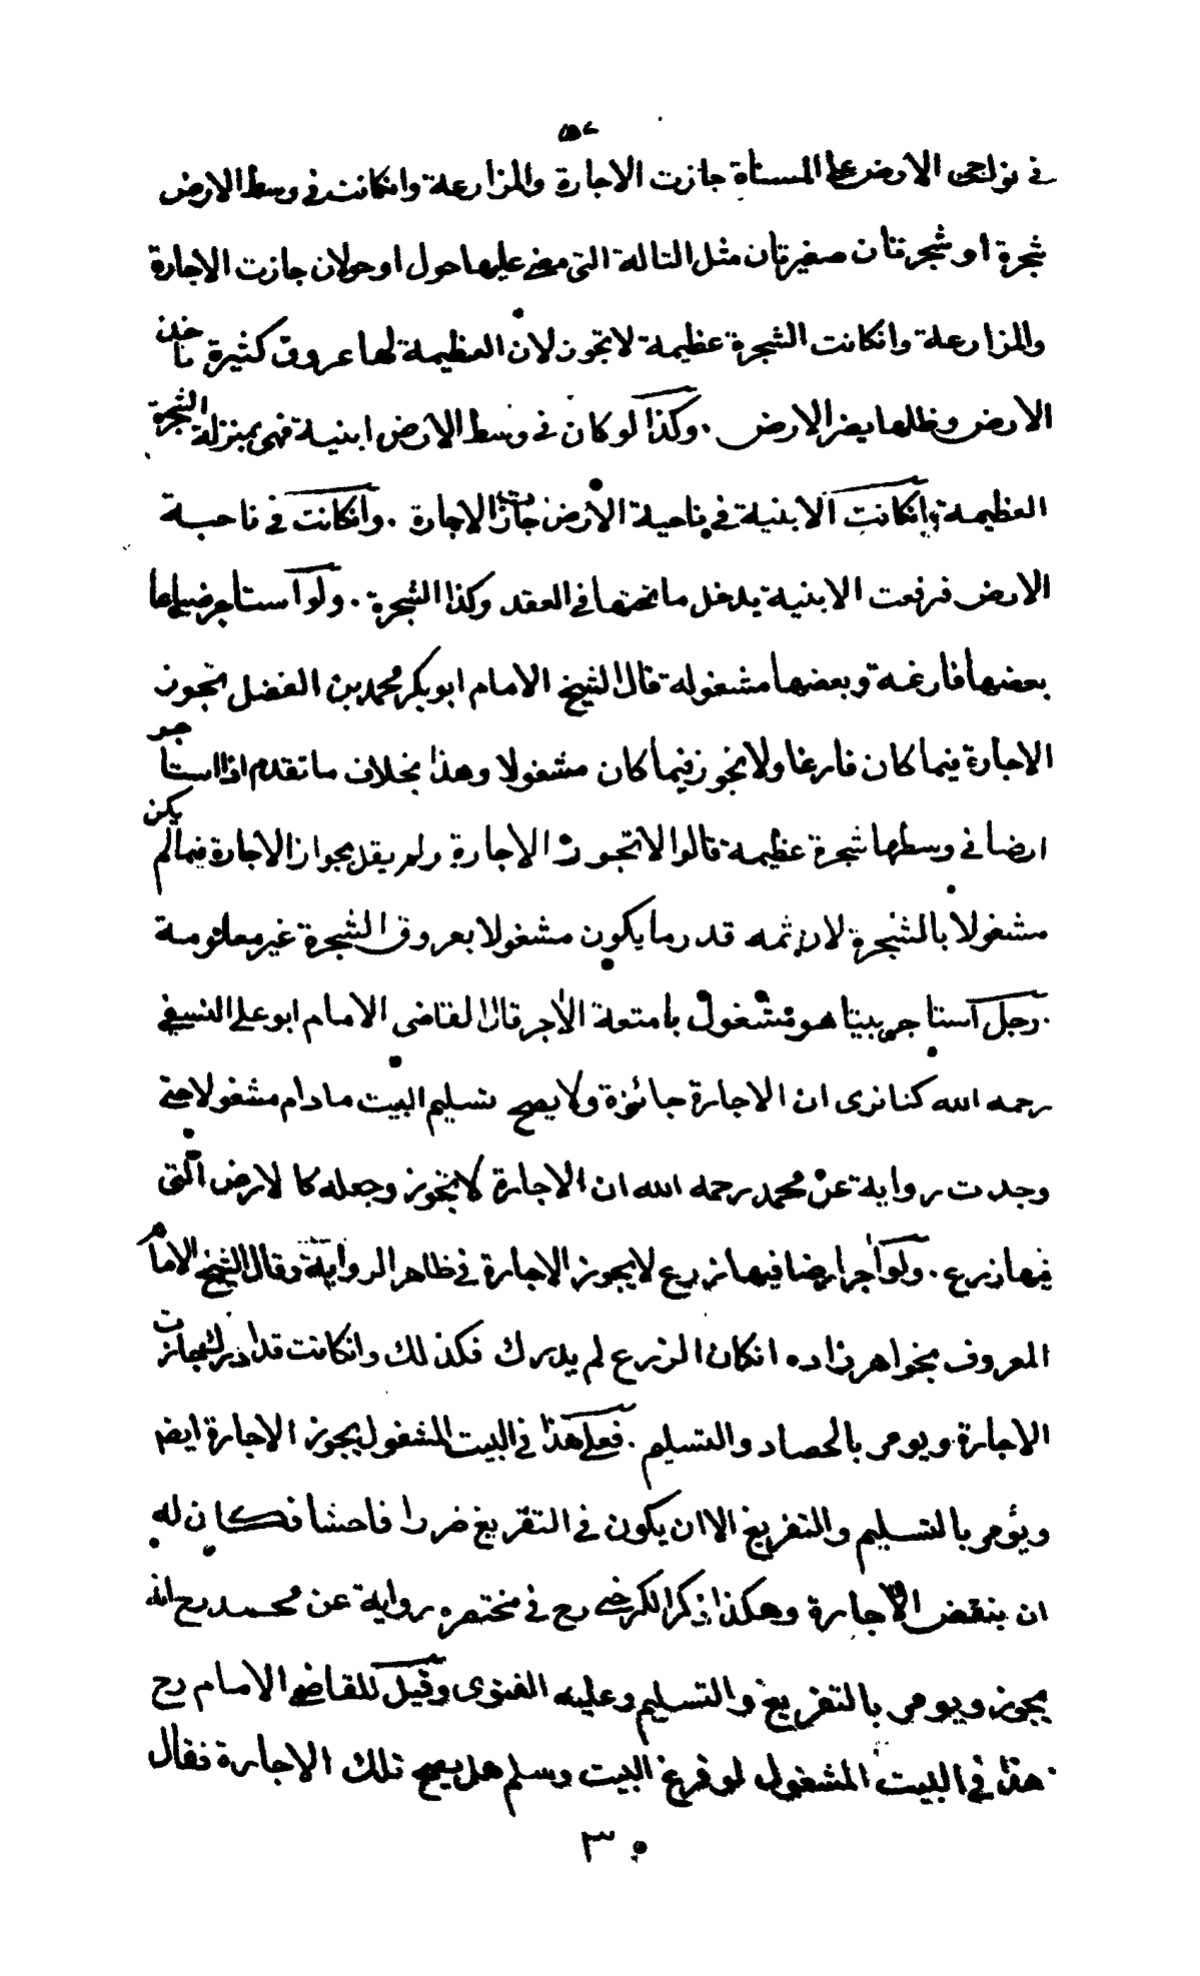 في نواحي الارض على المسناة جازت الاجارة والمزارعة وانكانت في وسط الارض
شجرة او شجرتان صغيرتان مثل التالة التي مضى عليها حول او حولان جازت الاجارة
والمزارعة وانكانت الشجرة عظيمة لا تجوز لان العظيمة لها عروق كثيرة تاخذ
الارض وظلها يضر الارض . وكذا لو كان في وسط الارض ابنية فهي بمنزلة الشجرة
العظيمة وانكانت الابنية في ناحية الارض جازت الاجارة . وانكانت في ناحية
الارض فرفعت الابنية يدخل ما تحتها في العقد وكذا الشجرة . ولو استاجر ضياعا
بعضها فارغة وبعضها مشغولة قال الشيخ الامام ابو بكر محمد بن الفضل تجوز
الاجارة فيما كان فارغا ولا تجوز فيما كان مشغولا وهذا بخلاف ما تقدم اذا استاجر
ارضا في وسطها شجرة عظيمة قالوا لا تجوز الاجارة ولم يقل بجواز الاجارة فيما لم يكن
مشغولا بالشجرة لان ثمه قدر ما يكون مشغولا بعروق الشجرة غير معلومة
. رجل استاجر بيتا هو مشغول بامتعة الاجر قال القاضي الامام ابو علي النسفي
رحمه الله كنا نرى ان الاجارة جائزة ولا يصح تسليم البيت مادام مشغولا حتى
وجدت رواية عن محمد رحمه الله ان الاجارة لا تجوز وجعله كالارض التي
فيها زرع . ولو اجر ارضا فيها زرع لا يجوز الاجارة في ظاهر الرواية وقال الشيخ الامام
المعروف بخواهر زاده انكان الزرع لم يدرك فكذلك وانكانت قد ادرك جازت
الاجارة ويومر بالحصاد والتسليم . فعلى هذا في البيت المشغول يجوز الاجارة ايض
ويؤمر بالتسليم والتفريغ الا ان يكون في التفريغ ضررا فاحشا فكان له
ان ينقض الاجارة وهكذا ذكر الكرخي رح في مختصره رواية عن محمد رح انه
يجوز ويومر بالتفريغ والتسليم وعليه الفتوى وقيل للقاضي الامام رح
هذا في البيت المشغول لو فرغ البيت وسلم هل يصح تلك الاجارة فقال
٣٠